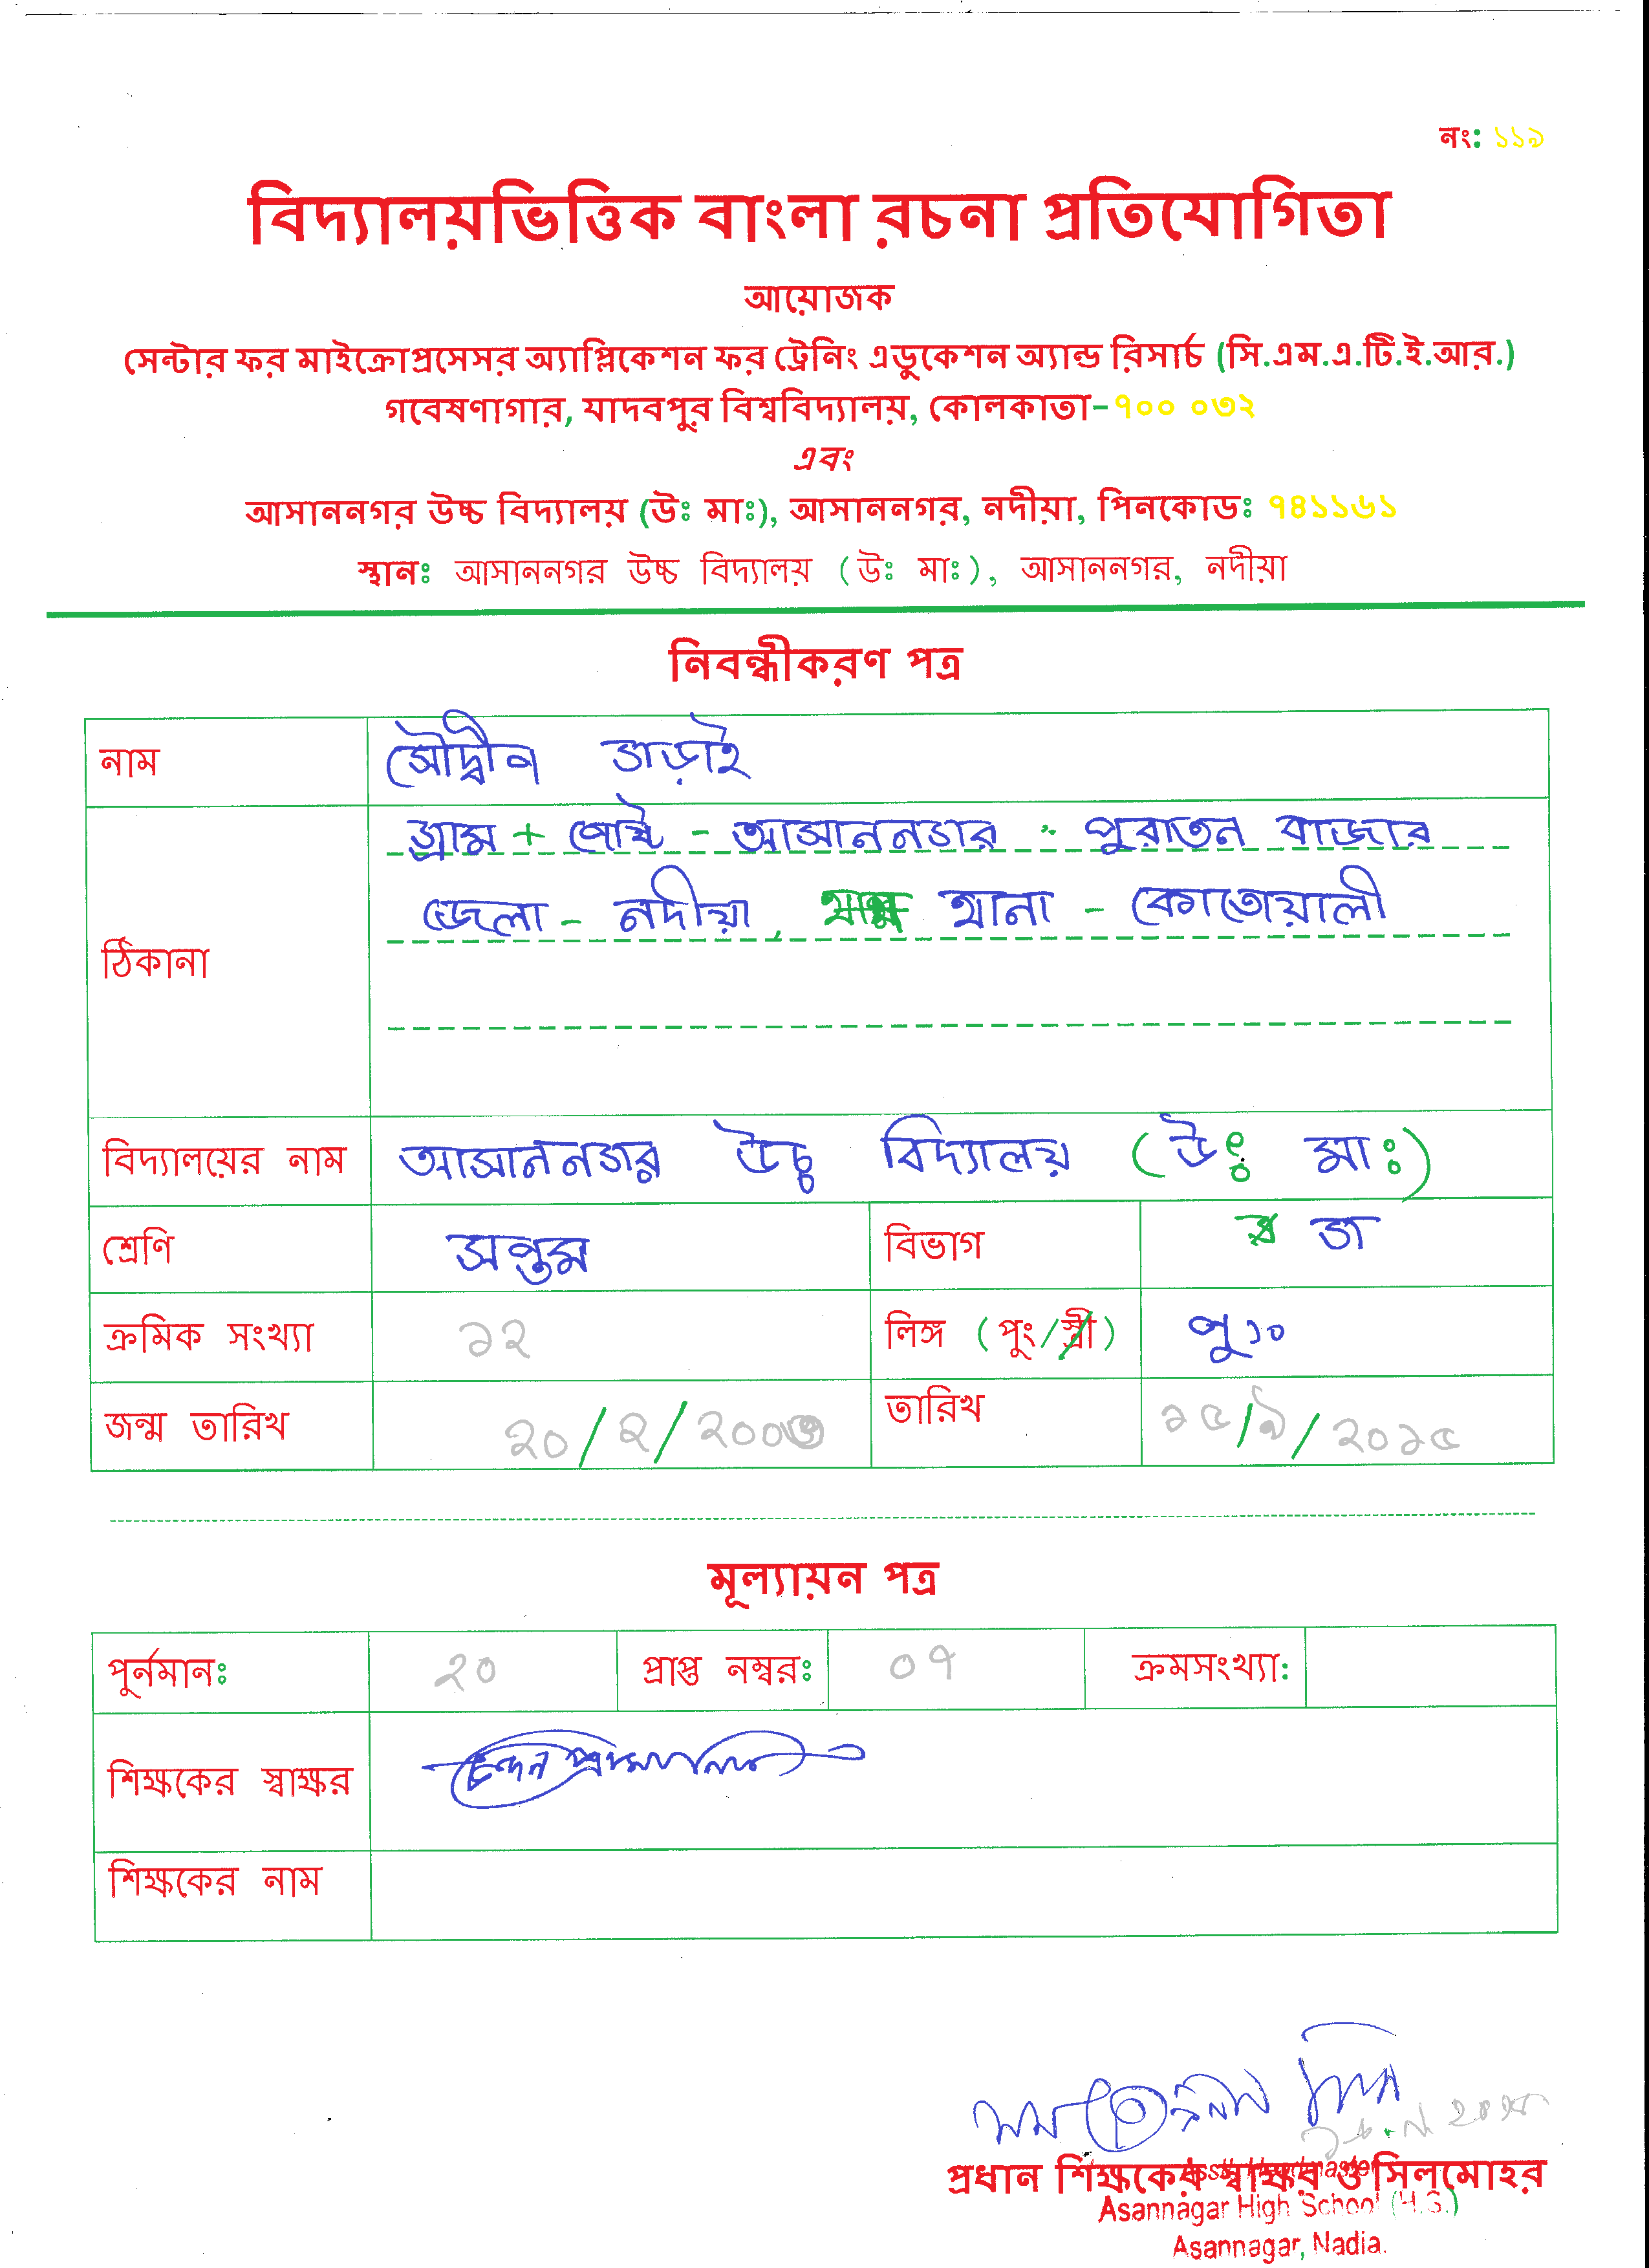 নং: ১১৯
বিদ্যালয়ভিত্তিক বাংলা রচনা প্রতিযোগিতা
আয়োজক
সেন্টার ফর মাইক্রোপ্রসেসর অ্যাপ্লিকেশন ফর ট্রেনিং এডুকেশন অ্যান্ড রিসার্চ (সি.এম.এ.টি.ই.আর.)
গবেষণাগার, যাদবপুর বিশ্ববিদ্যালয়, কোলকাতা-৭০০ ০৩২
এবং
আসাননগর উচ্চ বিদ্যালয় (উঃ মাঃ), আসাননগর, নদীয়া, পিনকোডঃ ৭৪১১৬১
স্থানঃ আসাননগর উচ্চ বিদ্যালয় (উঃ মাঃ), আসাননগর, নদীয়া
নিবন্ধীকরণ পত্র
নাম সৌদ্বীপ ভাড়াই
গ্রাম + পোষ্ট - আসাননগর পুরাতন বাজার
ঠিকানা জেলা - নদীয়া, থানা - কোতোয়ালী
বিদ্যালয়ের নাম আসাননগর উচ্চ বিদ্যালয় (উঃ মাঃ)
শ্রেণি সপ্তম বিভাগ জ
ক্রমিক সংখ্যা ১২ লিঙ্গ (পুং/স্ত্রী) পুং
জন্ম তারিখ ২০/২/২০০৩ তারিখ ১৫/৯/২০১৫
মূল্যায়ন পত্র
পূর্নমানঃ ২০ প্রাপ্ত নম্বরঃ ০৭ ক্রমসংখ্যা:
শিক্ষকের স্বাক্ষর চন্দন প্রামানিক
শিক্ষকের নাম
প্রধান শিক্ষকের স্বাক্ষর ও সিলমোহর
Asstt. Headmaster
Asannagar High School (H.S.)
Asannagar, Nadia.